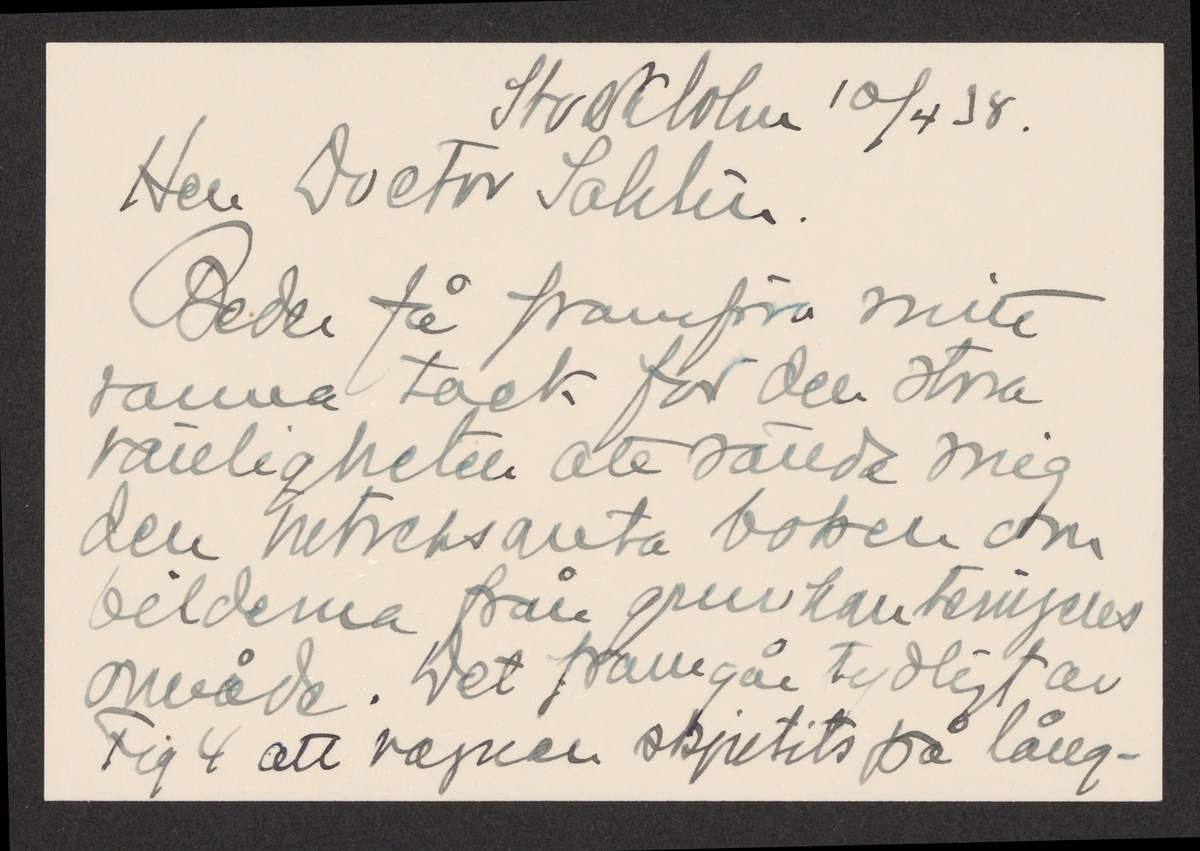 Stockholm 10/4 38.
Herr Doctor Sahlin.
Beder få framföra mitt
varma tack för den stora
vänligheten att sända mig
den intressanta boken om
bilderna från gruvhanteringens
område. Det framgår tydligt av
Fig 4 att vagnen skjutits på lång-